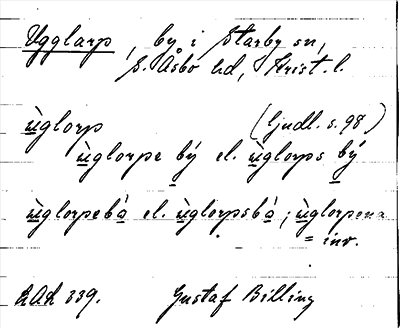 Ugglarp, by i Starby sn,
S. Åsbo hd, Krist. l.
ùglorp (ljudl. s. 98)
ùglorpe bý el. ùglorps bý
ùglorpebà el. ùglorpsbà; ùglorpena
= inv.
LAL 339. Gustaf Billing